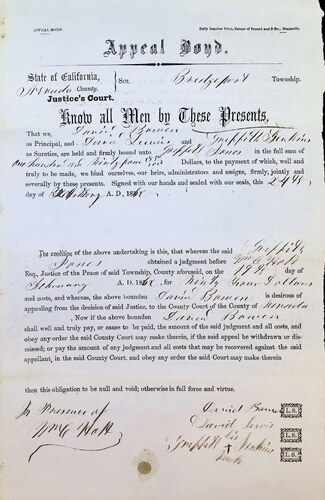 APPEAL BOND.
Daily Inquirer Print, Corner of Second and D Sts., Marysville.
Appeal Bond.
State of California, Sct. Bridgeport Township.
Nevada County.
Justice's Court.
Know all Men by These Presents,
That we, David Bowen
as Principal, and David Lewis and Griffith Jenkins
as Sureties, are held and firmly bound unto Griffith Jones in the full sum of
One hundred and Ninty four Dollars, to the payment of which, well and
truly to be made, we bind ourselves, our heirs, administrators and assigns, firmly, jointly and
severally by these presents. Signed with our hands and sealed with our seals, this
day of A. D., 186
The condition of the above undertaking is this, that whereas the said Griffith
Jones obtained a judgment before Wm C Holt
Esq., Justice of the Peace of said Township, County aforesaid, on the 19th day of
February A. D. 186 for Ninty Four Dollars
and costs, and whereas, the above bounden David Bowen is desirous of
appealing from the decision of said Justice, to the County Court of the County of Nevada
Now if the above bounden David Bowen
shall well and truly pay, or cause to be paid, the amount of the said judgment and all costs, and
obey any order the said Court may make therein, if the said appeal be withdrawn or dis-
missed; or pay the amount of any judgment and all costs that may be recovered against the said
appellant, in the said County Court, and obey any order the said Court may make therein
then this obligation to be null and void; otherwise in full force and virtue.
In Presence of David Bowen L.S.
Wm C Holt David Lewis L.S.
Griffith his X Jenkins L.S.
mark